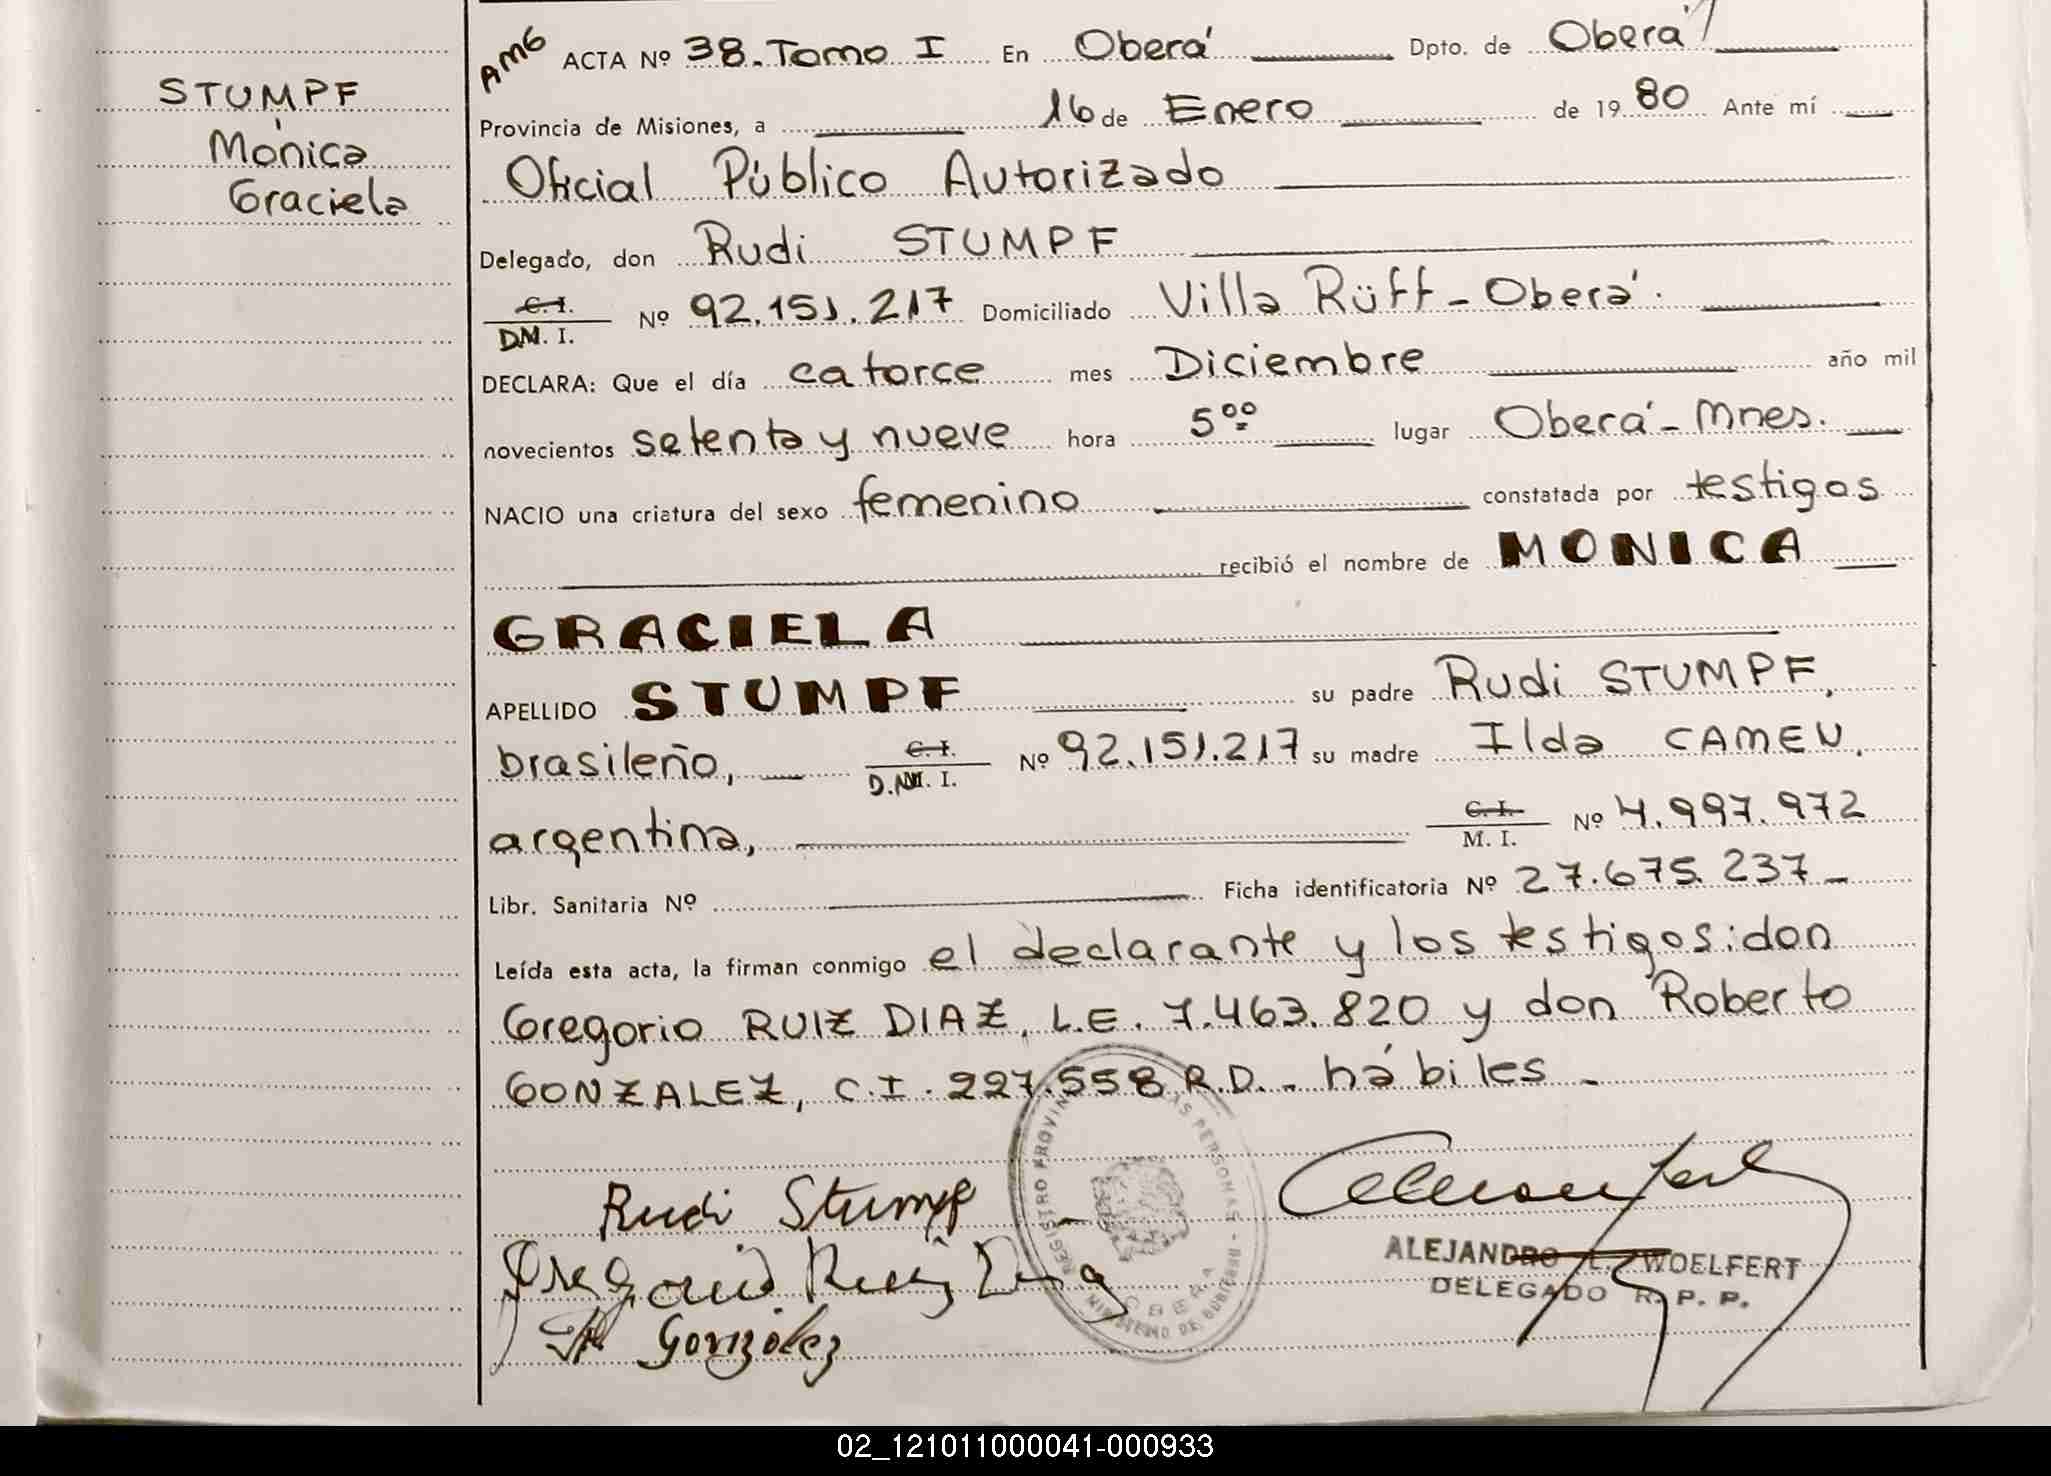 STUMPF
Mónica
Graciela
AMG ACTA Nº 38. Tomo I En Oberá Dpto. de Oberá
Provincia de Misiones, a 16 de Enero de 1980 Ante mí
Oficial Público Autorizado
Delegado, don Rudi STUMPF
C.I.
D.N.I. Nº 92.151.217 Domiciliado Villa Rüff - Oberá.
DECLARA: Que el día catorce mes Diciembre año mil
novecientos setenta y nueve hora 5⁰⁰ lugar Oberá - Mnes.
NACIO una criatura del sexo femenino constatada por testigos
recibió el nombre de MONICA
GRACIELA
APELLIDO STUMPF su padre Rudi STUMPF,
brasileño, C.I. D.N.I. Nº 92.151.217 su madre Ilda CAMEU,
argentina, C.I. M. I. Nº 4.997.972
Libr. Sanitaria Nº Ficha identificatoria Nº 27.675.237_
Leída esta acta, la firman conmigo el declarante y los testigos: don
Gregorio RUIZ DIAZ, L.E. 7.463.820 y don Roberto
GONZALEZ, C.I. 227.558 R.D. - hábiles -
Rudi Stumpf
Gregorio Ruiz Diaz
González
REGISTRO PROVINCIAL DE LAS PERSONAS - OBERA - MINISTERIO DE GOBIERNO
ALEJANDRO L. WOELFERT
DELEGADO R. P. P.
02_121011000041-000933